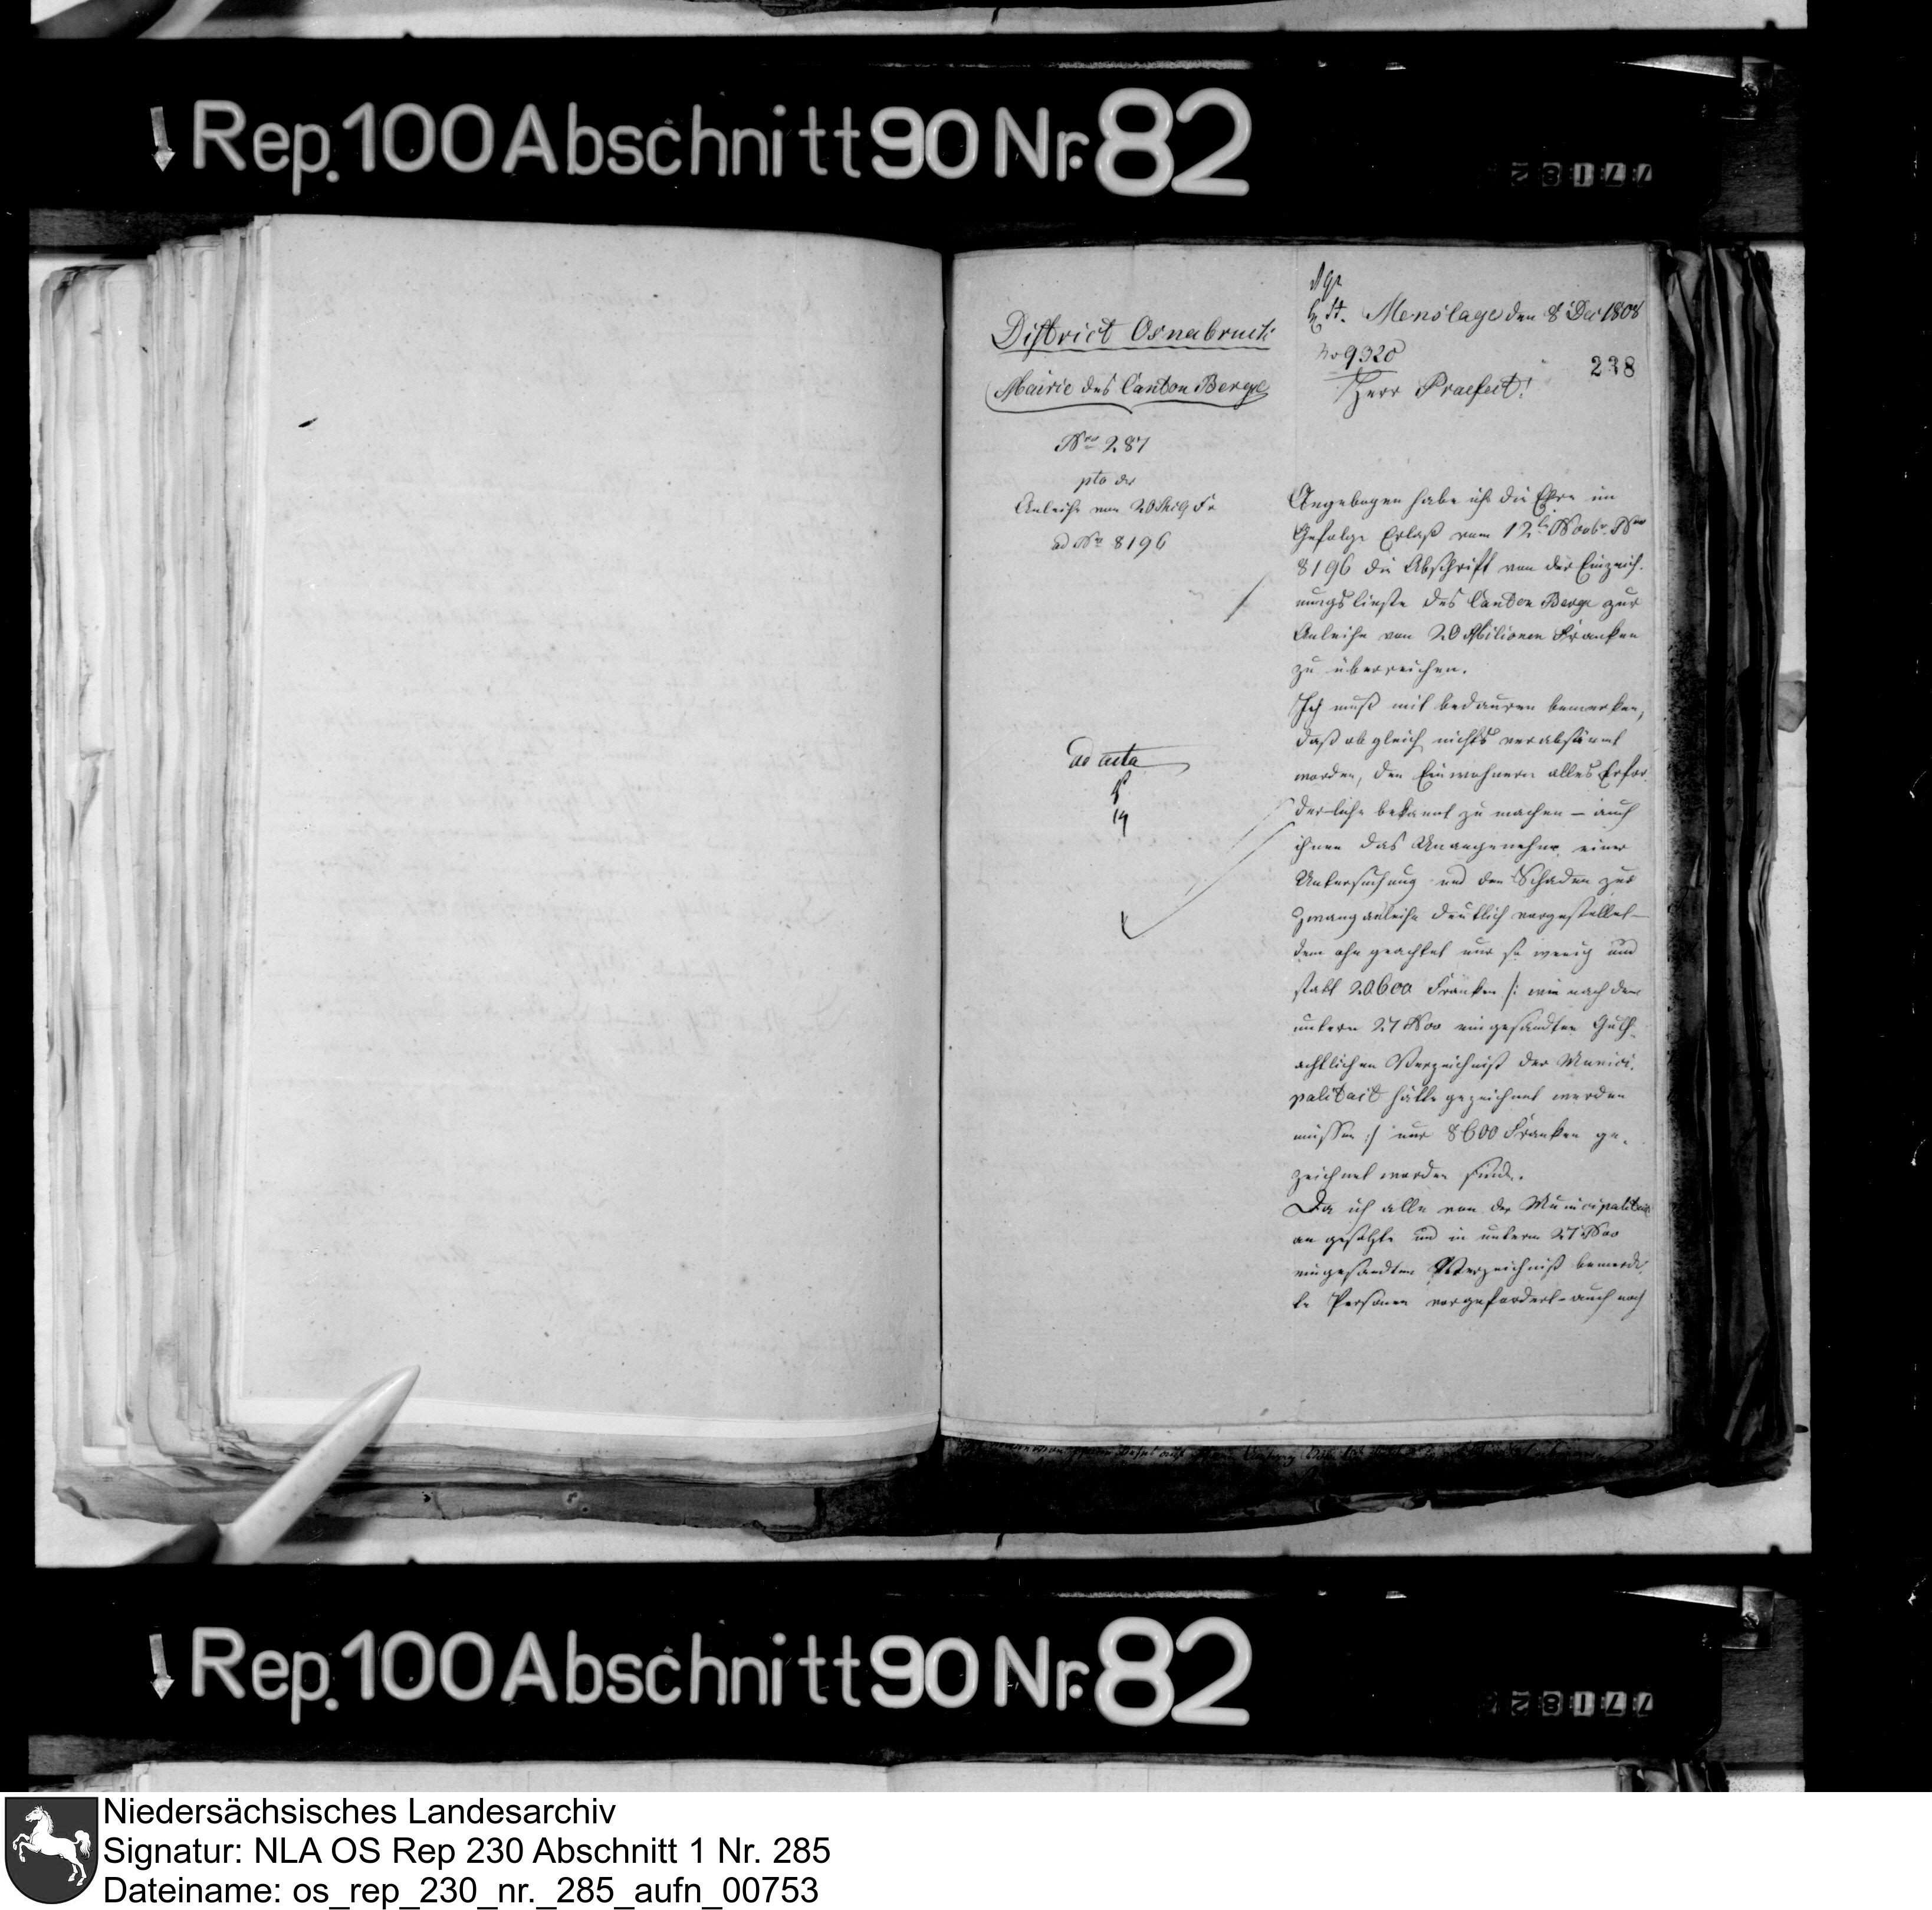 Rep. 100 Abschnitt 90 Nr. 82
77182
District Osnabrück
Mairie des Canton Berge
Nro 287
pto der
Anleihe von 20 Fr
ad No 8196
ad acta
Menslage den 8 Dec 1808
No 9320
238
Herr Praefect!
Angebogen habe ich die Ehre im
Gefolge Erlaß vom 12t Novbr. Nro
8196 die Abschrift von der Einzeich-
nungs lieste des Canton Berge zur
Anleihe von 20 Milionen Franken
zu überreichen.
Ich muß mit bedauren bemerken,
daß obgleich nichts verabsäumt
worden, den Einwohnern alles Erfor-
derliche bekannt zu machen – auch
ihnen das Unangenehme einer
Untersuchung und den Schaden zur
Zwanganleihe deutlich vorgestellet –
dem ohngeachtet nur so wenig und
statt 20600 Franken /: wie nach dem
unterm 27 Nov eingesandten Guth-
achtlichen Verzeichniß der Munici-
palitait hätte gezeichnet werden
müssen :/ nur 8600 Franken ge-
zeichnet worden sind.
Da ich alle von der Municipalitait
angesetzte und in unterm 27 Nov
eingesandten Verzeichniß bemerk-
te Personen vorgefordert – auch noch
Rep. 100 Abschnitt 90 Nr. 82
77182
Niedersächsisches Landesarchiv
Signatur: NLA OS Rep 230 Abschnitt 1 Nr. 285
Dateiname: os_rep_230_nr._285_aufn_00753